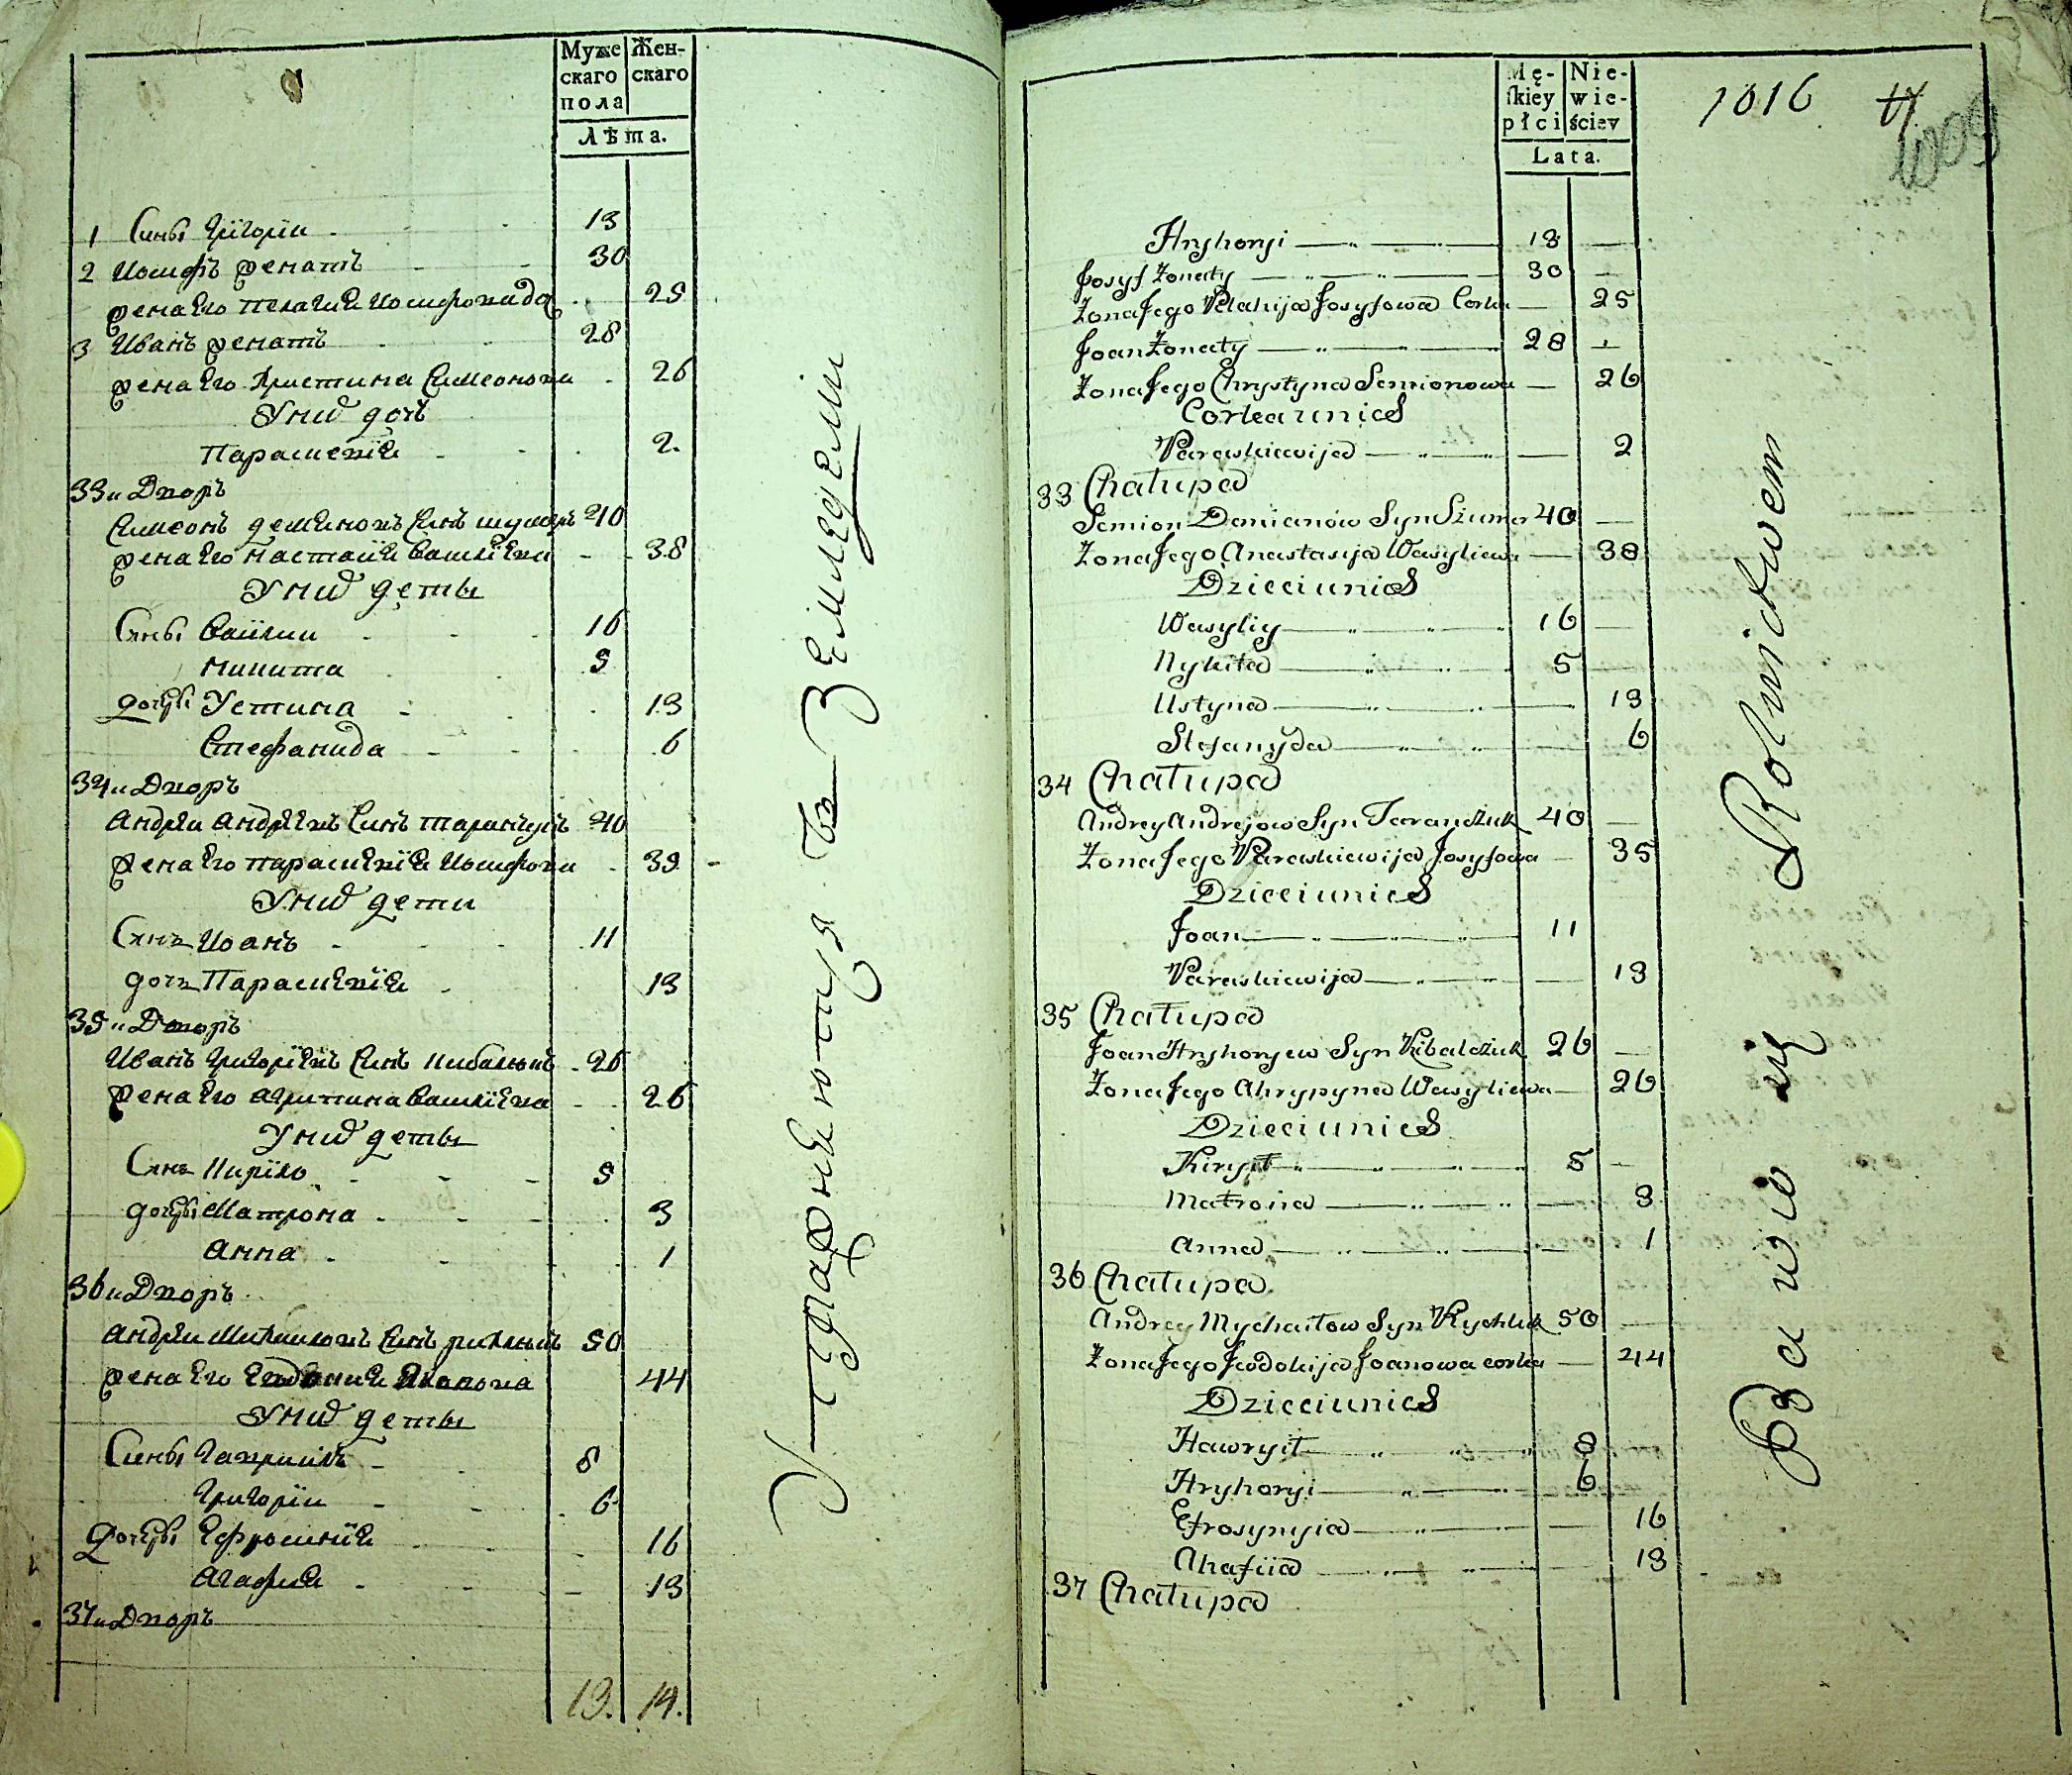 Муже
скаго
пола
Жен-
скаго
Лѣта.
1 Сины Григорїи 13
2 Иосифъ женатъ 30
жена Его пелагиꙗ Иосифова до 25
3 Иванъ женатъ 28
жена Его Христина Симеонова 26
У нид доч
Параскевїꙗ 2.
33и Дворъ
Симеонъ деминовъ Синъ шумеръ 40
жена Его настасїꙗ василїева 38
У нид деты
Сины василии 16
никита 5
дочеры Устина 13
Стефанида 6
34и Дворъ
андреи андреевъ Синъ таранчукъ 40
жена Его параскевїꙗ Иосифова 35
У нид дети
Синъ Иоанъ 11
дочъ Параскевїꙗ 13
35и Дворъ
Иванъ григорїевъ Синъ кибалюкъ 26
жена Его агрипина василїева 26
У нид деты
Синъ Кирїло 5
дочеры Матрона 3
анна 1
36и Дворъ
андреи Михаиловъ Синъ рихлыкъ 50
жена Его Евдокиꙗ 44
У нид деты
Сины гавриилъ 8
григорїи 6
дочеры Ефросинїꙗ 16
агафиꙗ 13
37и Дворъ
13. 14.
Упражнꙗютця въ Земледелїи
Mę-
skiey
płci
Nie-
wie-
ściey
Lata.
1016
1009
Hryhoryi 13
Josyf Żonaty 30
Żona Jego Pelahija Josyfowa Corka 25
Joan Żonaty 28
Żona Jego Chrystyna Semionowa 26
Corka u nich
Paraskiewija 2
33 Chałupa
Semion Demianow Syn Szumer 40
Żona Jego Anastasija Wasyliewa 38
Dzieci u nich
Wasyliy 16
Nykita 5
Ustyna 13
Stefanyda 6
34 Chałupa
Andrey Andrejow Syn Taranczuk 40
Żona Jego Paraskiewija Josyfowa 35
Dzieci u nich
Joan 11
Paraskiewija 13
35 Chałupa
Joan Hryhoryew Syn Kibalczuk 26
Żona Jego Ahrypyna Wasyliewa 26
Dzieci u nich
Kirył 5
Matrona 3
Anna 1
36 Chałupa
Andrey Mychaiłow Syn Rychlik 50
Żona Jego Jewdokija Joanowa corka 44
Dzieci u nich
Hawryił 8
Hryhoryi 6
Efrosynyia 16
Ahafiia 13
37 Chałupa
Bawią się Rolnictwem